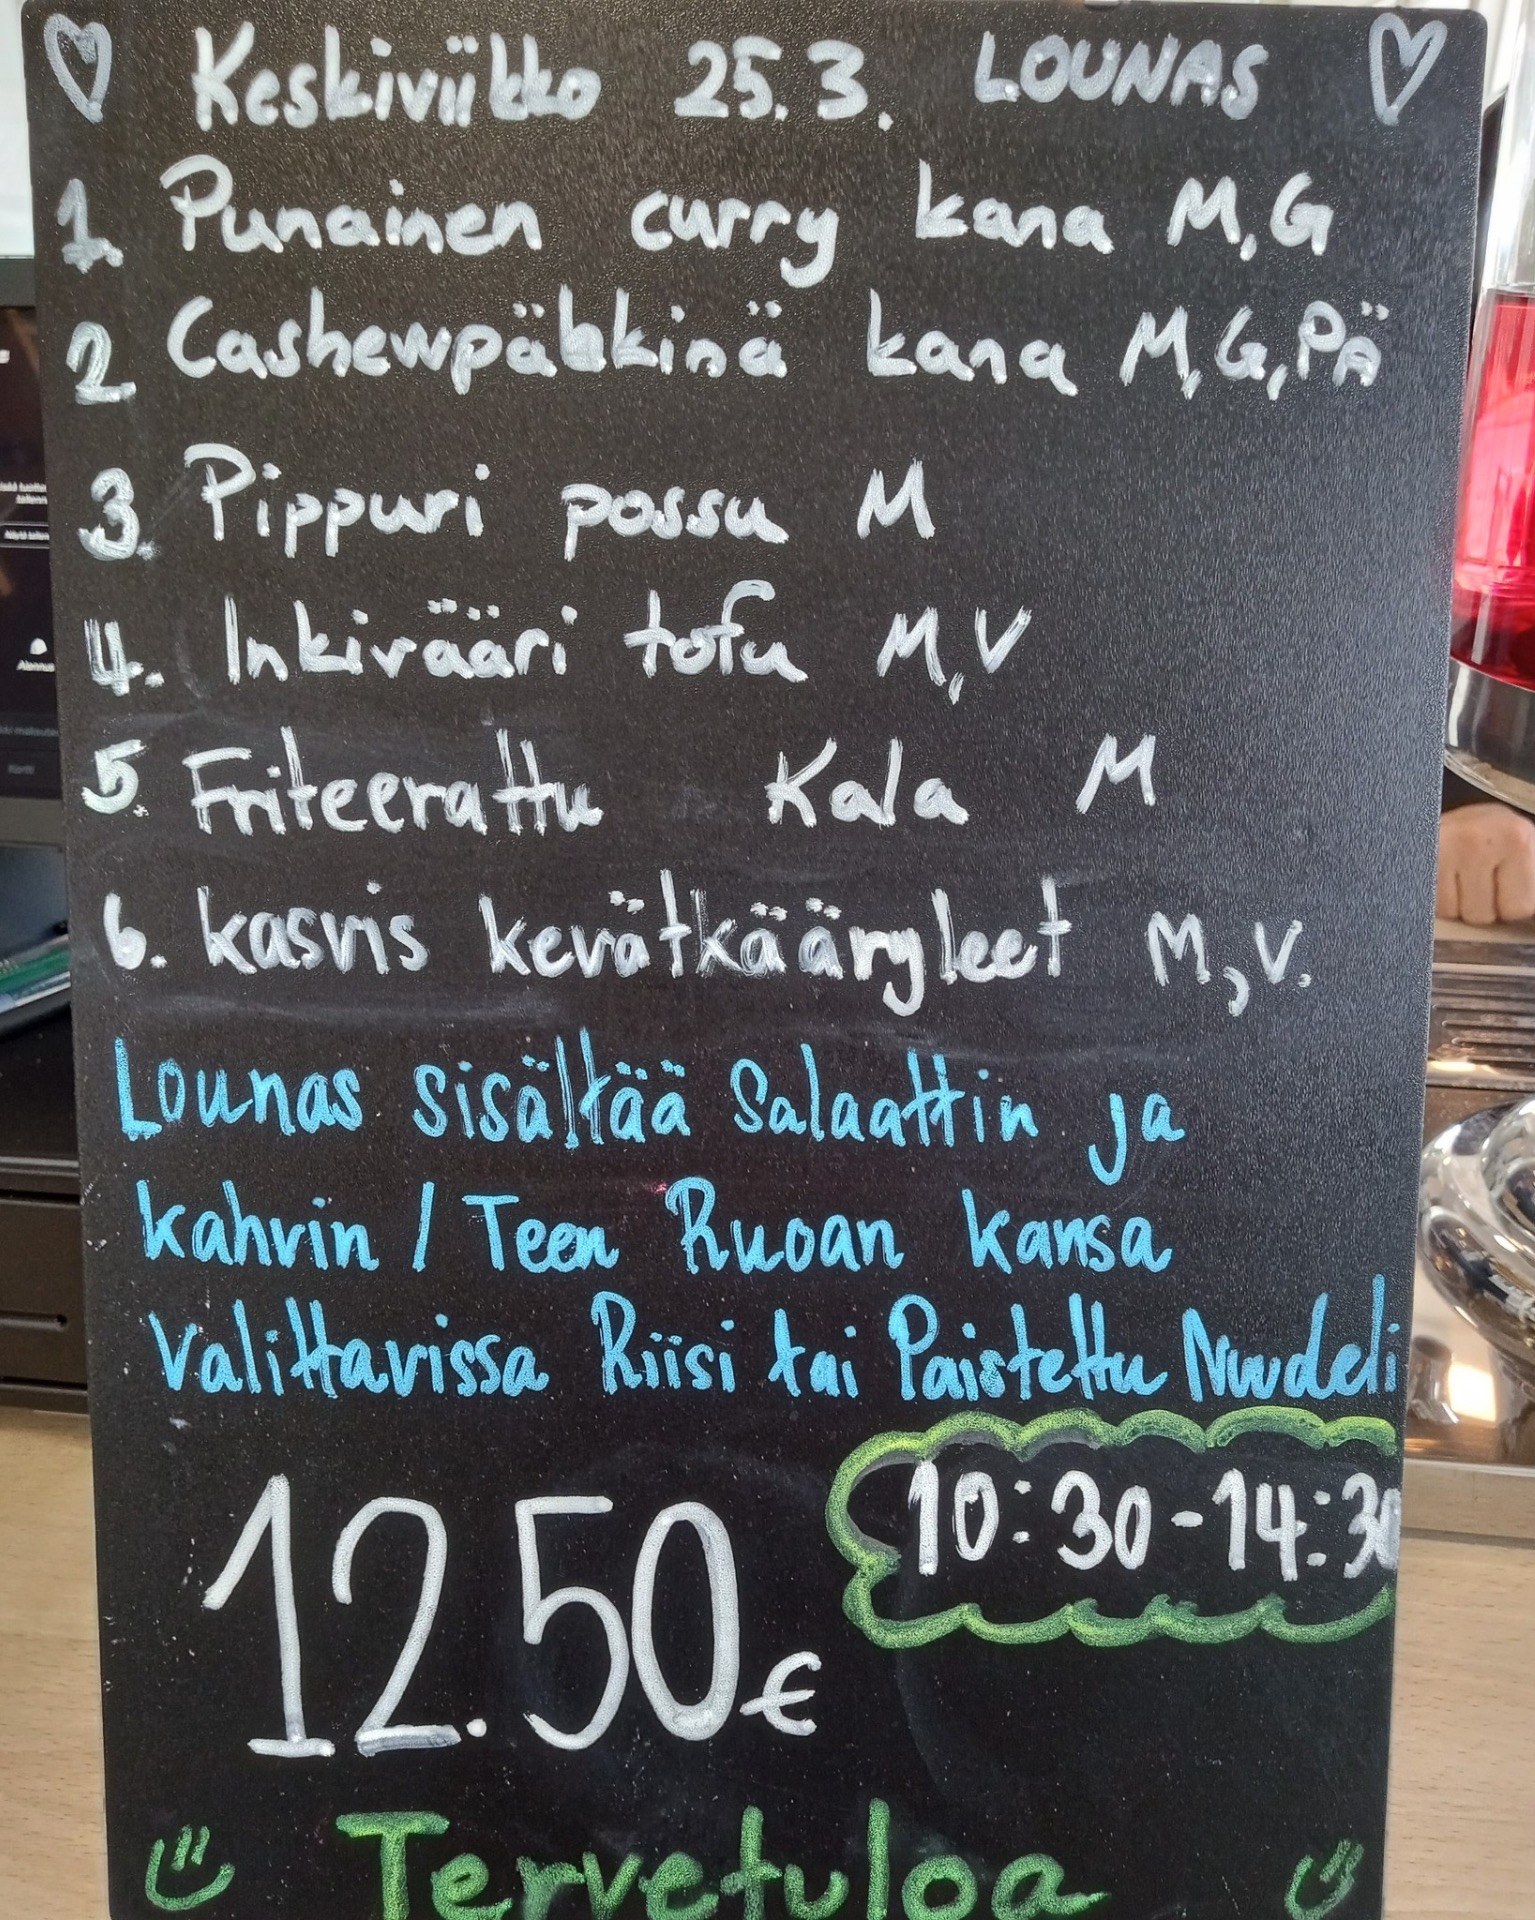 Keskiviikko 25.3. LOUNAS
1. Punainen curry kana M,G
2. Cashewpähkinä kana M,G,PÄ
3. Pippuri possu M
4. Inkivääri tofu M,V
5. Friteerattu Kala M
6. kasvis kevätkääryleet M,V.
Lounas sisältää Salaattin ja
kahvin / Teen Ruoan kansa
Valittavissa Riisi tai Paistettu Nuudeli
10:30-14:30
12.50€
Tervetuloa